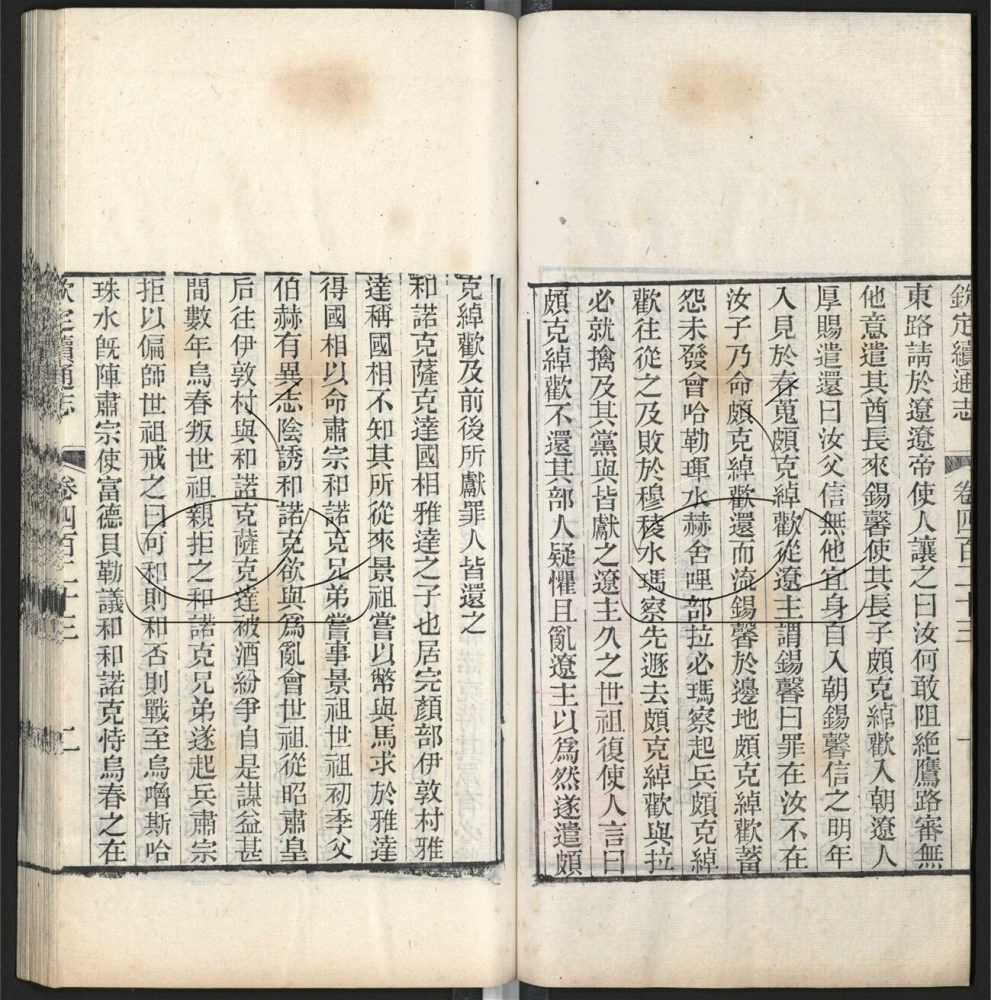 欽定續通志 卷四百二十三 一
東路請於遼遼帝使人讓之曰汝何敢阻絕鷹路審無
他意遣其酋長來錫馨使其長子頗克綽歡入朝遼人
厚賜遣還曰汝父信無他宜身自入朝錫馨信之明年
入見於春蒐頗克綽歡從遼主謂錫馨曰罪在汝不在
汝子乃命頗克綽歡還而流錫馨於邊地頗克綽歡蓄
怨未發會哈勒琿水赫舍哩部拉必瑪察起兵頗克綽
歡往從之及敗於穆稜水瑪察先遯去頗克綽歡與拉
必就擒及其黨與皆獻之遼主久之世祖復使人言曰
頗克綽歡不還其部人疑懼且亂遼主以為然遂遣頗
克綽歡及前後所獻罪人皆還之
和諾克薩克達國相雅達之子也居完顏部伊敦村雅
達稱國相不知其所從來景祖嘗以幣與馬求於雅達
得國相以命肅宗和諾克兄弟嘗事景祖世祖初季父
伯赫有異志陰誘和諾克欲與為亂會世祖從昭肅皇
后往伊敦村與和諾克薩克達被酒紛爭自是謀益甚
間數年烏春叛世祖親拒之和諾克兄弟遂起兵肅宗
拒以偏師世祖戒之曰可和則和否則戰至烏嚕斯哈
珠水旣陣肅宗使富德貝勒議和和諾克恃烏春之在
欽定續通志 卷四百二十三 二